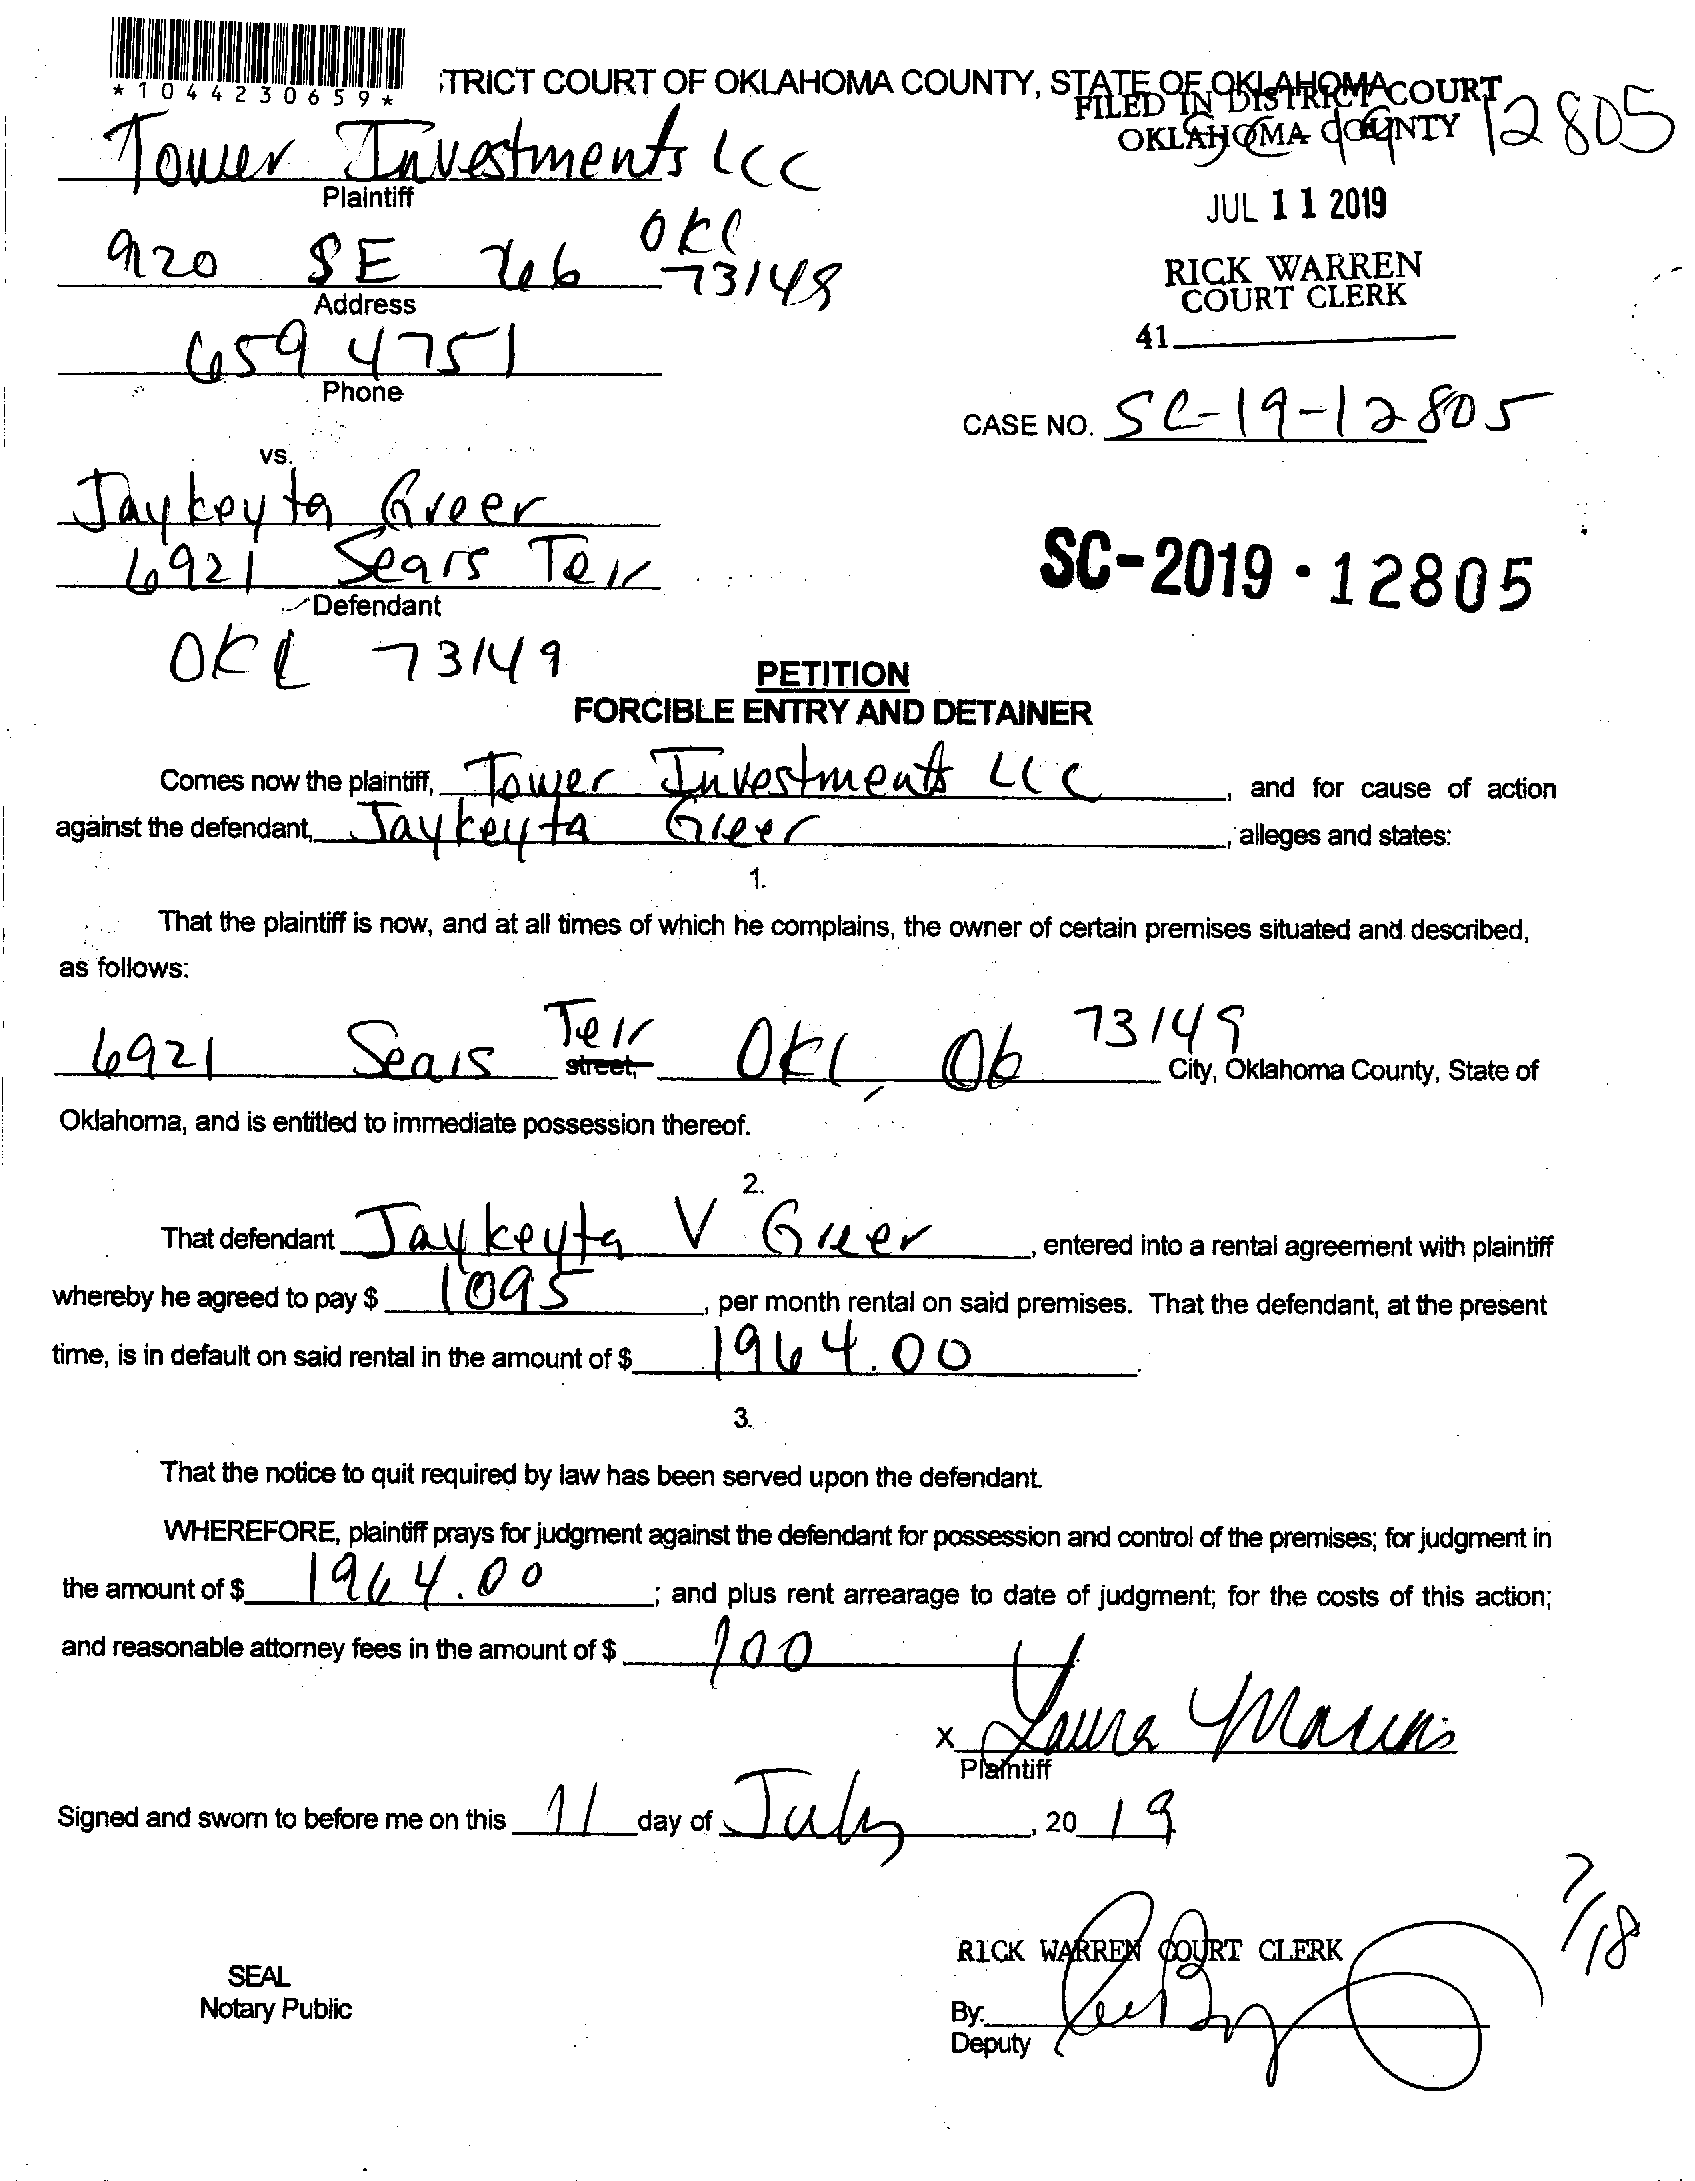 *1044230659*
TRICT COURT OF OKLAHOMA COUNTY, STATE OF OKLAHOMA
FILED IN DISTRICT COURT
OKLAHOMA COUNTY
SC 19 12805
JUL 11 2019
RICK WARREN
COURT CLERK
41
Tower Investments LLC
Plaintiff
920 SE
73149
Address
659 4751
Phone
CASE NO. SC-19-12805
vs.
Jaykeyta Greer
6921 Sears Terr
Defendant
SC-2019-12805
73149
PETITION
FORCIBLE ENTRY AND DETAINER
Comes now the plaintiff, Tower Investments LLC, and for cause of action
against the defendant, Jaykeyta Greer, alleges and states:
1.
That the plaintiff is now, and at all times of which he complains, the owner of certain premises situated and described,
as follows:
6921 Sears Terr street, 73149 City, Oklahoma County, State of
Oklahoma, and is entitled to immediate possession thereof.
2.
That defendant Jaykeyta V Greer, entered into a rental agreement with plaintiff
whereby he agreed to pay $ 1095, per month rental on said premises. That the defendant, at the present
time, is in default on said rental in the amount of $ 1964.00.
3.
That the notice to quit required by law has been served upon the defendant.
WHEREFORE, plaintiff prays for judgment against the defendant for possession and control of the premises; for judgment in
the amount of $ 1964.00; and plus rent arrearage to date of judgment; for the costs of this action;
and reasonable attorney fees in the amount of $ 100
x Laura
Plaintiff
Signed and sworn to before me on this 11 day of July, 2019
7/18
RICK WARREN COURT CLERK
SEAL
Notary Public
By:
Deputy